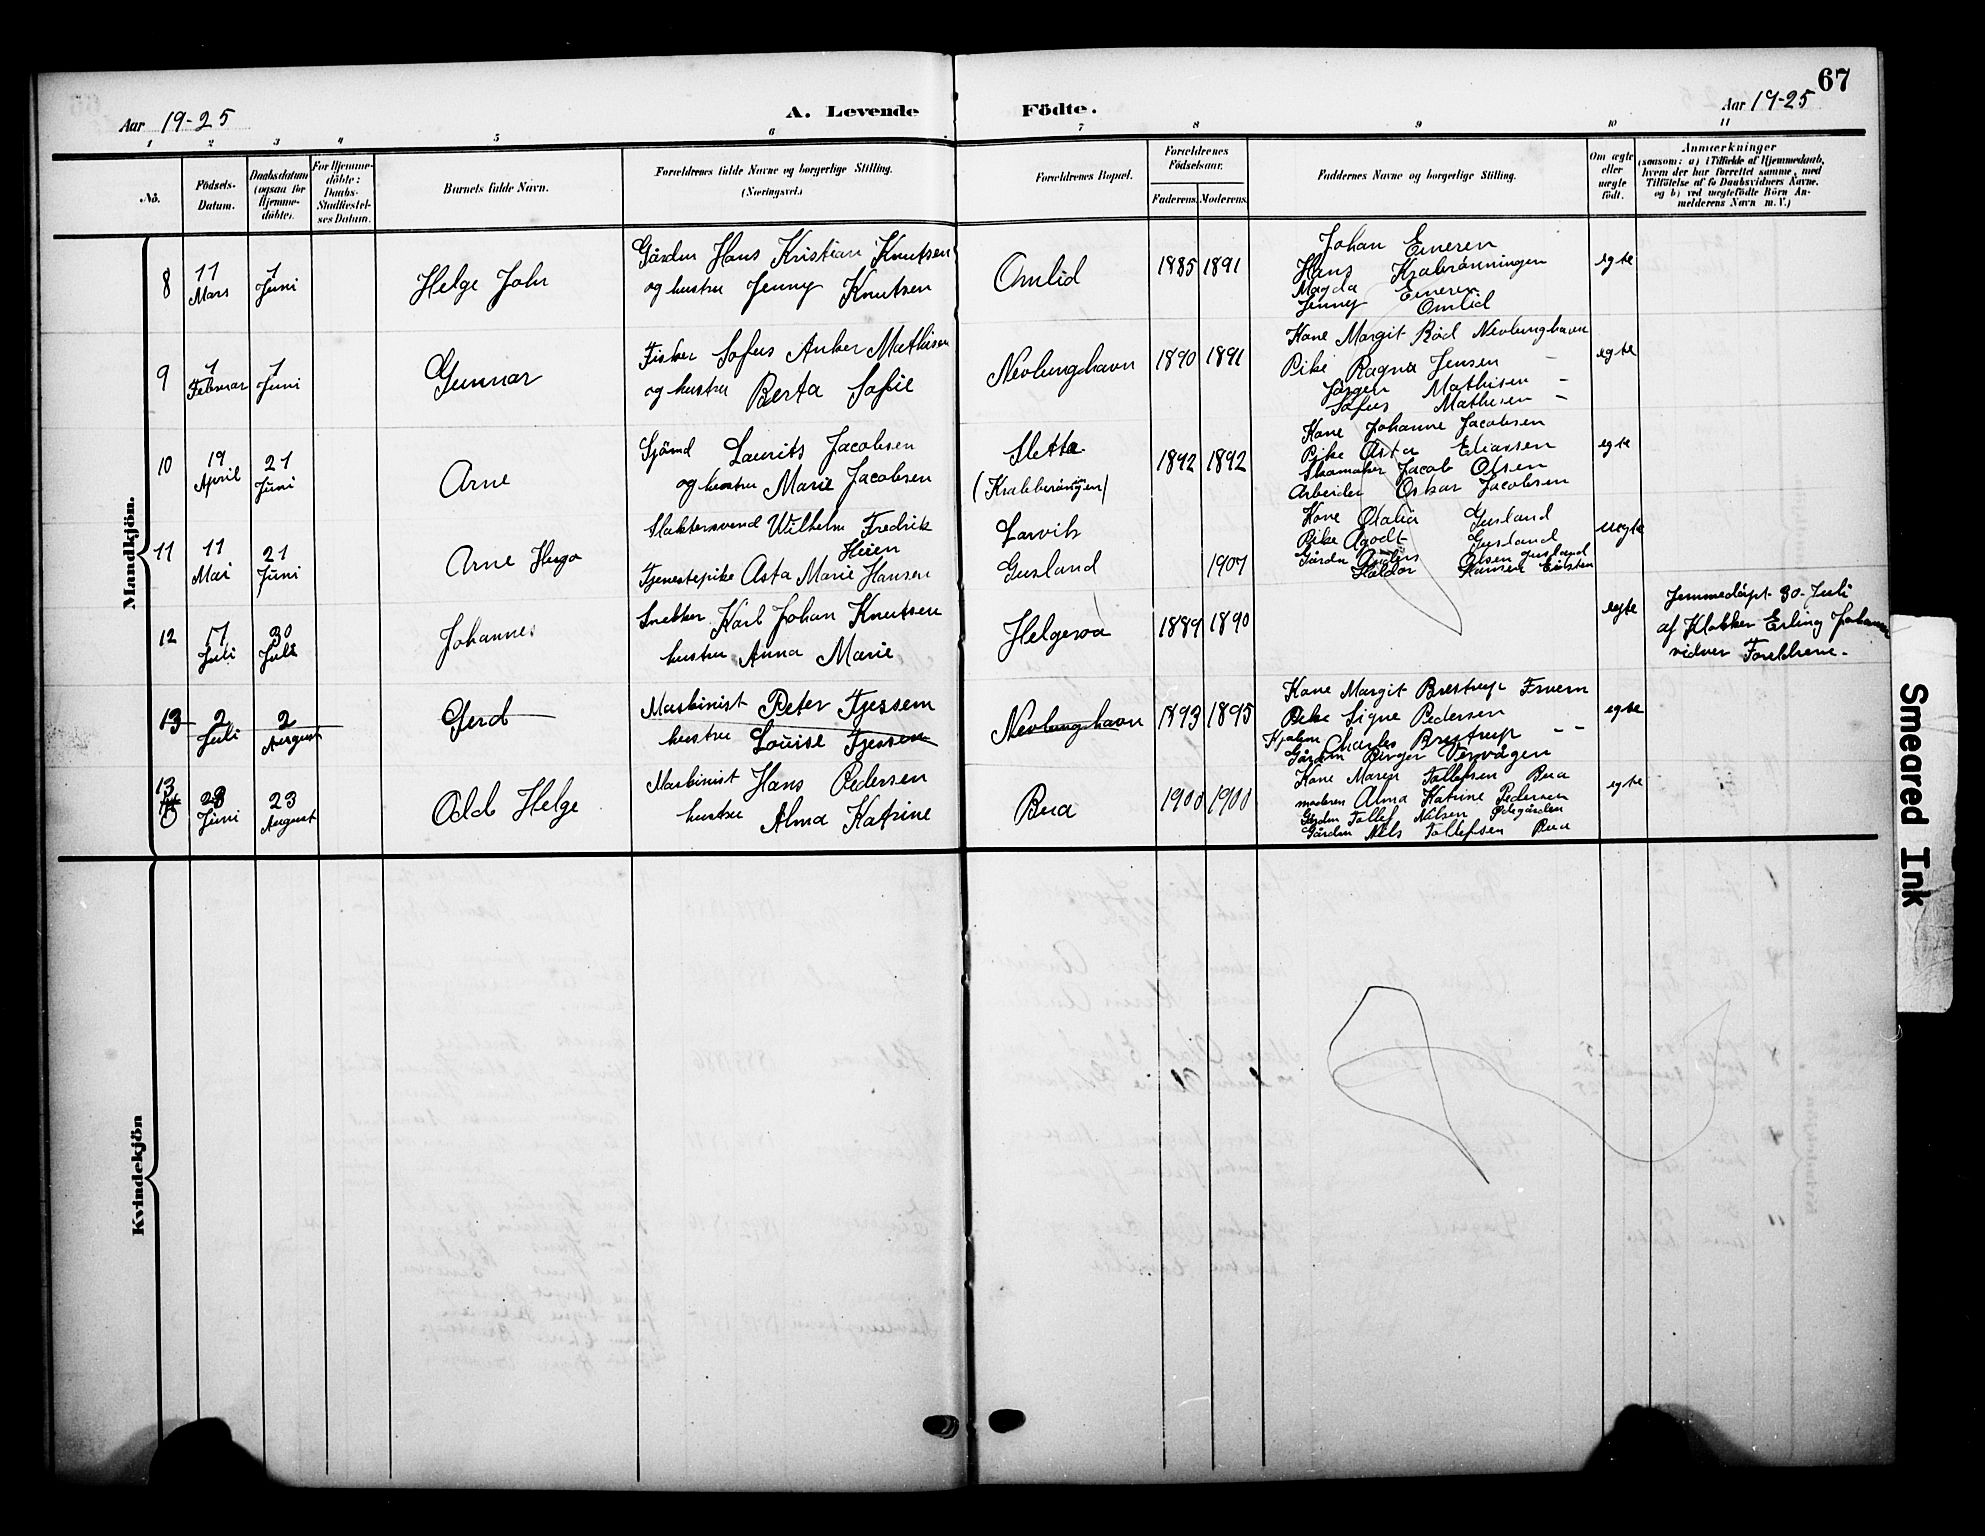 67
Aar 19-25
A. Levende Födte.
Aar 19-25
1 2 3 4 5 6 7 8 9 10 11
No.
Födsels-Datum.
Daabsdatum (ogsaa for Hjemme-döbte).
For Hjemme-döbte: Daabs-Stadfæstel-ses Datum.
Barnets fulde Navn.
Forældrenes fulde Navne og borgerlige Stilling. (Næringsvei.)
Forældrenes Bopæl.
Forældrenes Födselsaar.
Faderens. Moderens.
Faddernes Navne og borgerlige Stilling.
Om ægte eller uægte födt.
Anmærkninger
(saasom: a) i Tilfælde af Hjemmedaab, hvem der har forrettet samme, med Tilföielse af to Daabsvidners Navne. og b) ved uægtefödte Börn An-melderens Navn m. V.)
Mandkjön.
8
11 Mars
1 Juni
Helge John
Gårdm Hans Kristian Knutsen
og hustru Jenny Knutsen
Omlid
1885 1891
Johan Eineren
Hans Krabberönningen
Magda Eineren
Jenny Omlid
egte
9
1 Februar
1 Juni
Gunnar
Fisker Sofus Anker Mathisen
og hustru Berta Sofie
Nevlunghavn
1890 1891
Kone Margit Röd Nevlunghavn
Pike Ragna Jensen -
Jörgen Mathisen -
Sofus Mathisen -
egte
10
19 April
21 Juni
Arne
Sjömd Laurits Jacobsen
og hustru Marie Jacobsen
Sletta
1892 1892
Kone Johanne Jacobsen
Pike Asta Eliassen
Skomaker Jacob Olsen
Arbeider Oskar Jacobsen
egte
11
11 Mai
21 Juni
Arne Hugo
Slaktersvend Wilhelm Fredrik
Heien
Tjenestepike Asta Marie Hansen
Larvik
Gusland
1907
Kone Otalia Gusland
Pike Gusland
Gårdm Anders Olsen Gusland
Haldor Hansen
uegte
12
17 Juli
30 Juli
Johannes
Snekker Karl Johan Knutsen
hustru Anna Marie
Helgeroa
1889 1890
egte
Jemmedöpt 30-Juli
af Klokker Erling Johansen
vidner Foreldrene.
13
2 Juli
2 August
Gerd
Maskinist Peter Tjessem
hustru Louise Tjessem
Nevlunghavn
1893 1895
Kone Margit Brestrup
Pike Signe Pedersen
Charles Brystrup - -
Gårdm Birger
egte
13
28 Juni
23 August
Odd Helge
Maskinist Hans Pedersen
hustru Alma Katrine
Bua
1900 1900
Kone Maren Tollefsen Bua
moderen Alma Katrine Pedersen
Gårdm Tollef Nilsen Ödegården
Gårdm Nils Tollefsen Bua
egte
Kvindekjön
Smeared Ink